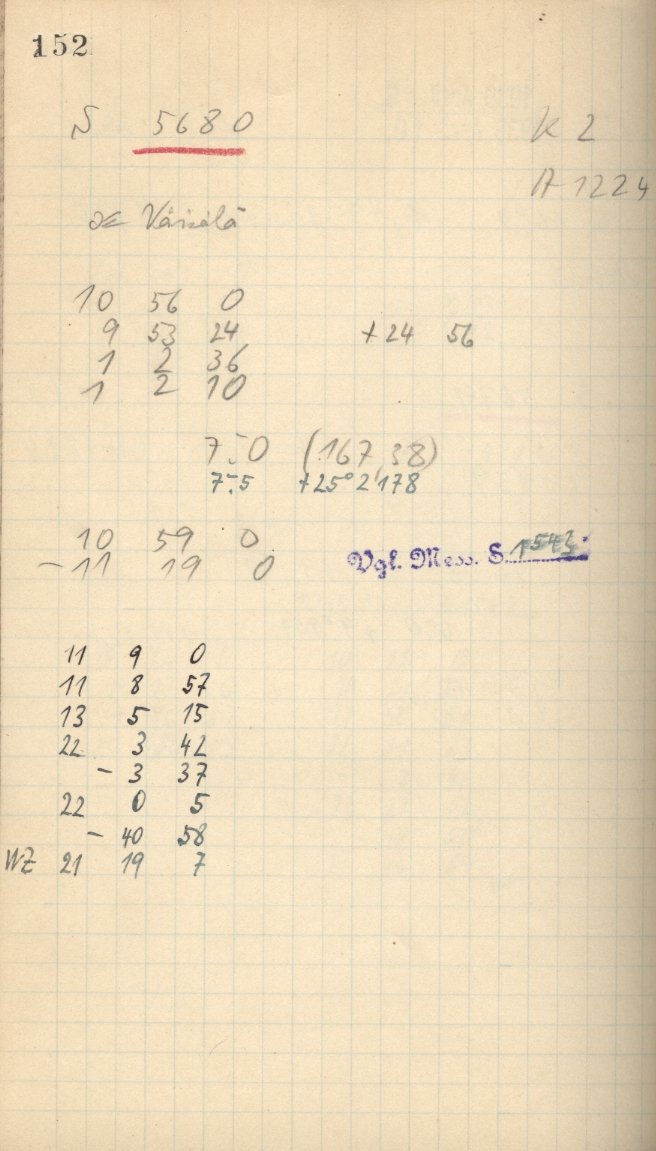 152
S 5680
K 2
A 1224
Väisälä
10 56 0
9 53 24 +24 56
1 2 36
1 2 10
7.0 (167,38)
7.5 +25° 2,178
10 59 0
- 11 19 0
Vgl. Mess. S.
11 9 0
11 8 57
13 5 15
22 3 42
- 3 37
22 0 5
- 40 58
WZ 21 19 7